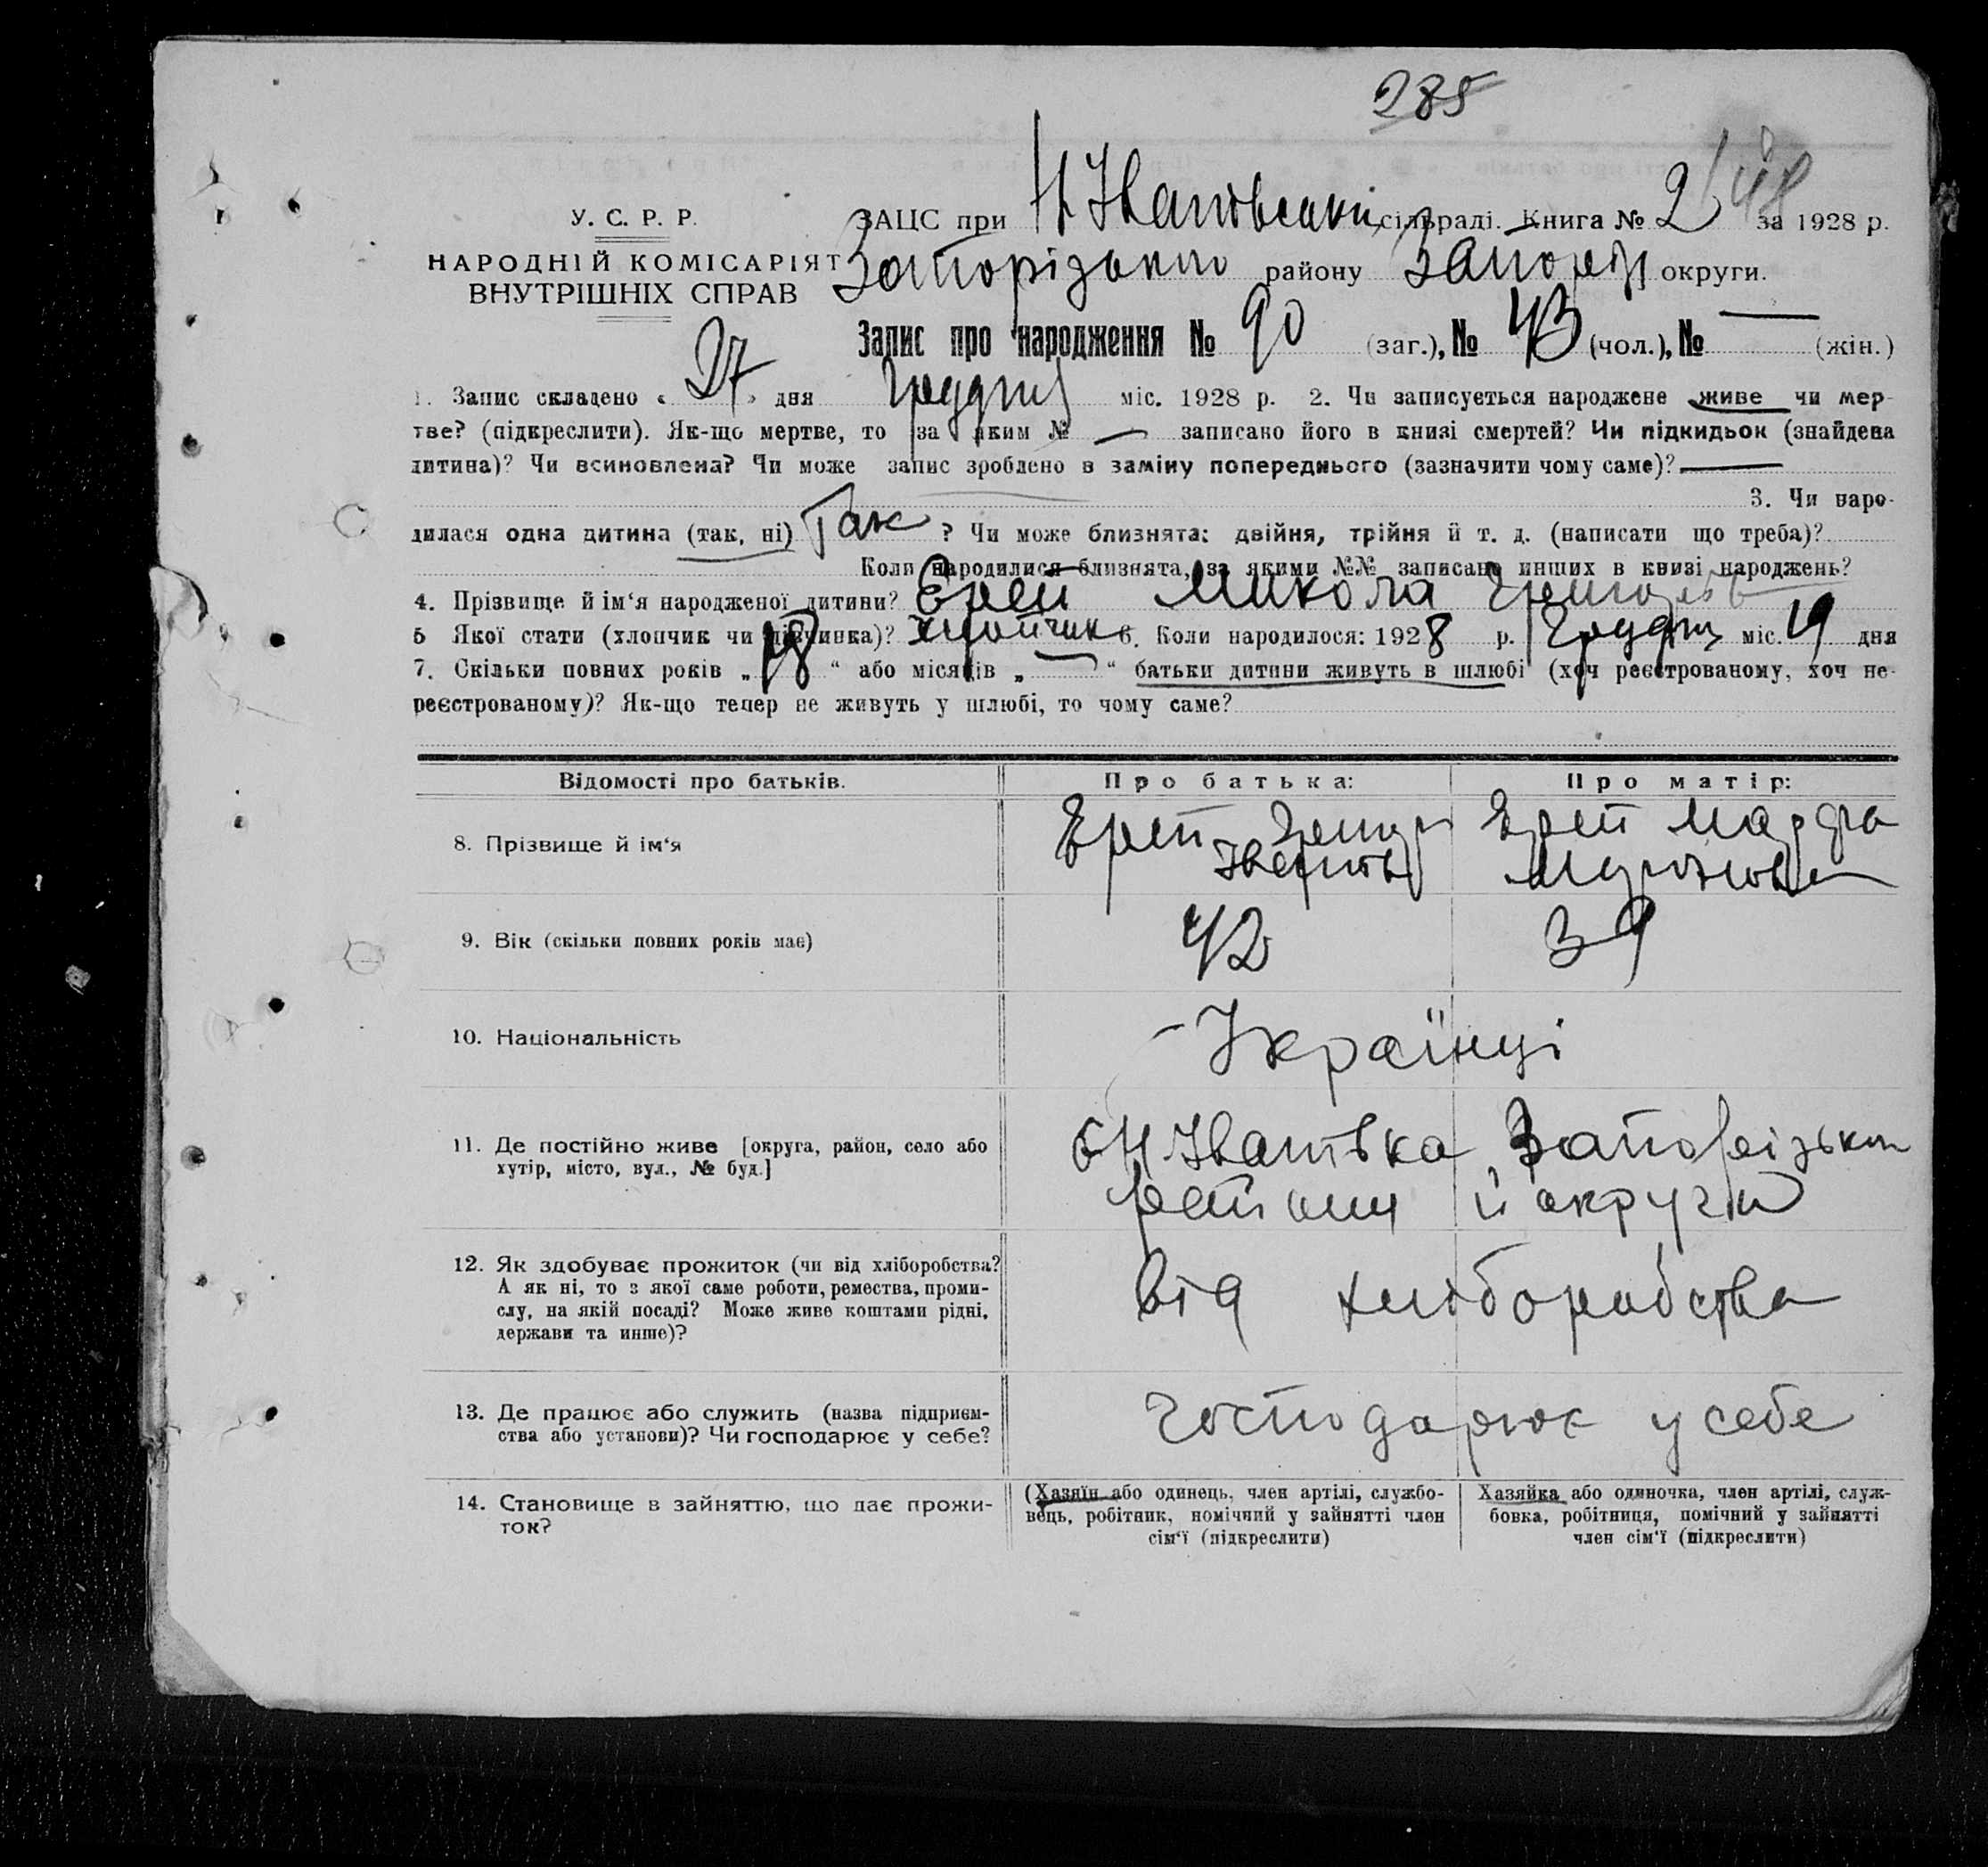 285
У. С. Р. Р.
НАРОДНІЙ КОМІСАРІЯТ
ВНУТРІШНІХ СПРАВ
ЗАЦС при Н Іванівській сільраді. Книга № 2 за 1928 р.
Запорізького району Запоріз округи.
Запис про народження № 90 (заг.), № 43 (чол.), № — (жін.)
1. Запис складено « 27 » дня Грудня міс. 1928 р. 2. Чи записується народжене живе чи мер-
тве? (підкреслити). Як-що мертве, то за яким № — записано його в книзі смертей? Чи підкидьок (знайдена
дитина)? Чи всиновлена? Чи може запис зроблено в заміну попереднього (зазначити чому саме)? —
3. Чи наро-
дилася одна дитина (так, ні) Так ? Чи може близнята: двійня, трійня й т. д. (написати що треба)?
Коли народилися близнята, за якими №№ записано инших в книзі народжень?
4. Прізвище й ім‘я народженої дитини? Ерей Микола Григорів
5 Якої стати (хлопчик чи дівчинка)? Хлопчик 6. Коли народилося: 1928 р. Грудня міс. 19 дня
7. Скільки повних років „ 18 “ або місяців „ — “ батьки дитини живуть в шлюбі (хоч реєстрованому, хоч не-
реєстрованому)? Як-що тепер не живуть у шлюбі, то чому саме?
Відомості про батьків. Про батька: Про матір:
8. Прізвище й ім‘я Ерей Ерей
9. Вік (скільки повних років має) 42 39
10. Національність - Українці
11. Де постійно живе [округа, район, село або
хутір, місто, вул., № буд.]
с Н Іванівка, Запорізького
району й округи
12. Як здобуває прожиток (чи від хліборобства?
А як ні, то з якої саме роботи, ремества, проми-
слу, на якій посаді? Може живе коштами рідні,
держави та инше)?
Від хліборобства
13. Де працює або служить (назва підприєм-
ства або установи)? Чи господарює у себе?
Господарює у себе
14. Становище в зайняттю, що дає прожи-
ток?
(Хазяїн або одинець, член артілі, службо-
вець, робітник, помічний у зайнятті член
сім‘ї (підкреслити)
Хазяйка або одиночка, член артілі, служ-
бовка, робітниця, помічний у зайнятті
член сім‘ї (підкреслити)